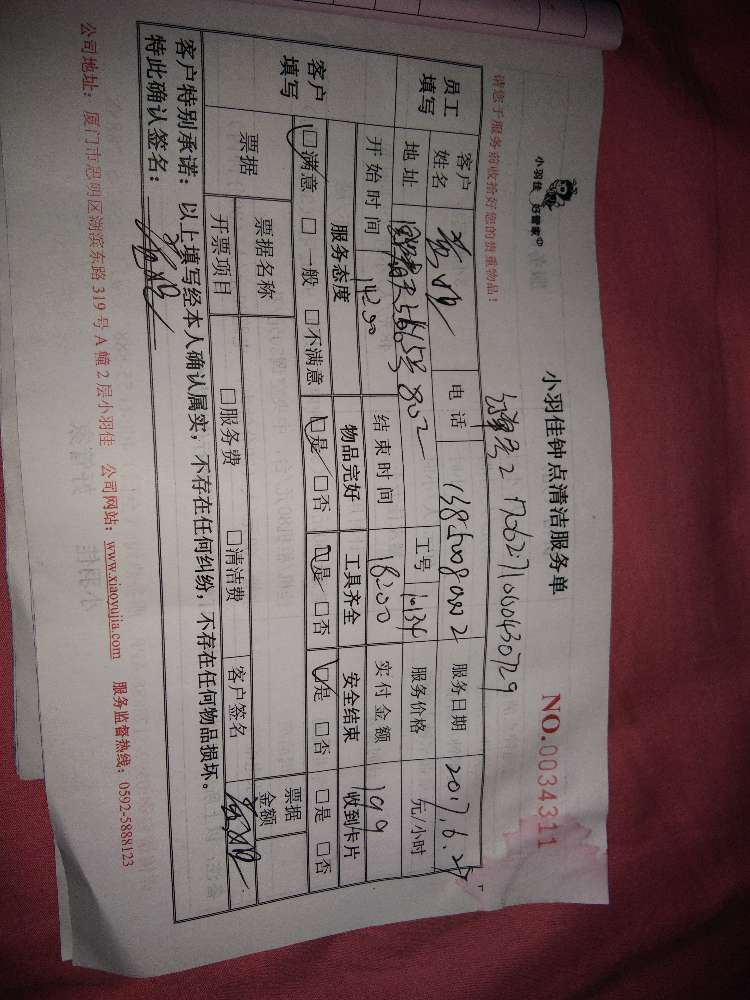 小羽佳 好管家
小羽佳钟点清洁服务单
NO.0034311
请您于服务前收拾好您的贵重物品!
1706271060430729
员工填写
客户姓名
电话
服务日期 2017.6.27
地址 802
工号 10134
服务价格 元/小时
开始时间 14:00
结束时间 18:00
实付金额 109
客户填写
服务态度 物品完好 工具齐全 安全结束 收到卡片
□满意 □一般 □不满意 □是 □否 □是 □否 □是 □否 □是 □否
票据
票据名称
票据金额
开票项目 □服务费 □清洁费 客户签名
客户特别承诺:以上填写经本人确认属实,不存在任何纠纷,不存在任何物品损坏。
特此确认签名:
公司地址:厦门市思明区湖滨东路319号A幢2层小羽佳 公司网站:www.xiaoyujia.com 服务监督热线:0592-5888123